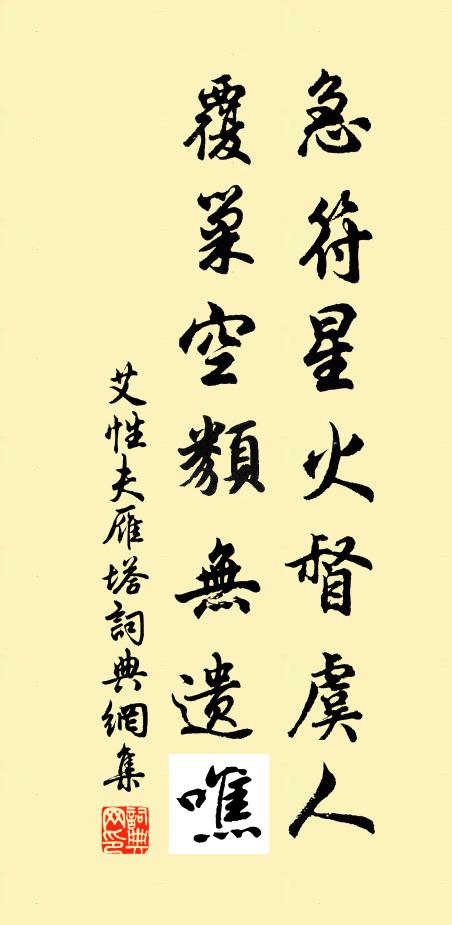 急符星火督虞人
覆巢空類無遺噍
艾性夫雁塔詞典網集
詞典网印